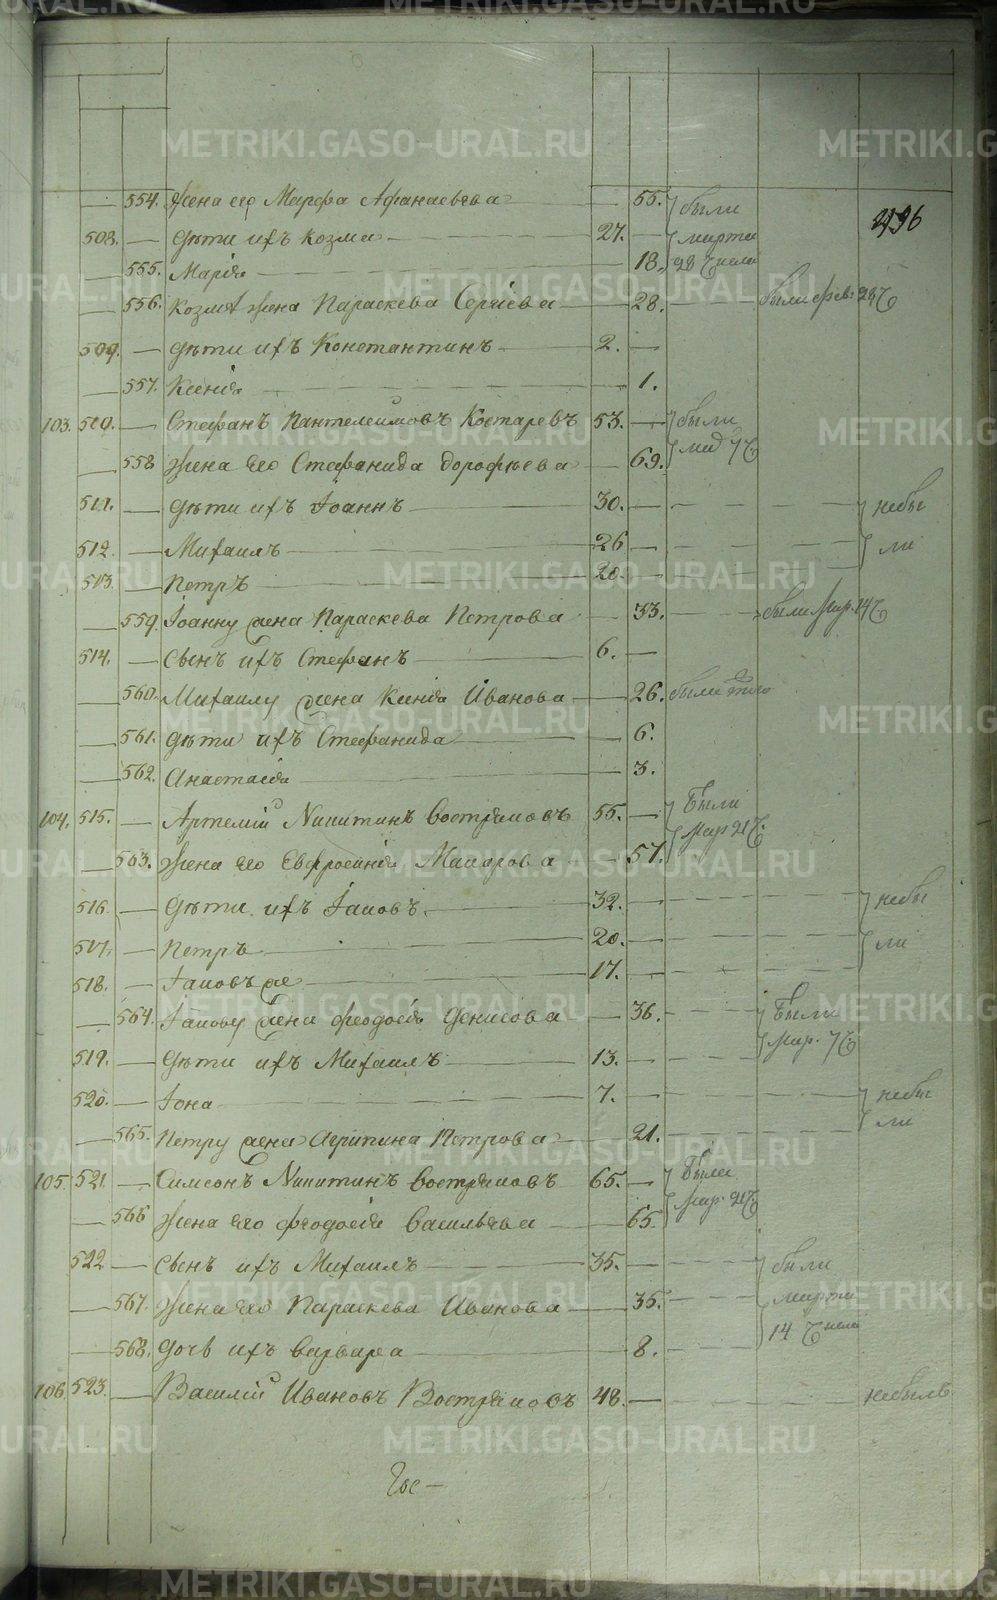 496
554. Жена его Марфа Афанасьева 55. были
508. дѣти ихъ Козма 27. марта
555. Марія 18. 28 числа
556. Козмѣ жена Параскева Сергіева 28. были фев: 28 ч
509. дѣти ихъ Константинъ 2.
557. Ксенія 1.
103. 510. Стефанъ Пантелеимовъ Костаревъ 53. были
558 Жена его Стефанида Дорофѣева 69. 7 ч
511. дѣти ихъ Іоаннъ 30. небы
512. Михаилъ 26 ли
513. Петръ 20.
559. Іоанну жена Параскева Петрова 33. были Мар. 14 ч
514. сынъ ихъ Стефанъ 6.
560. Михаилу жена Ксенія Иванова 26. были
561. дѣти ихъ Стефанида 6.
562. Анастасія 3.
104. 515. Артемій Никитинъ Востряковъ 55. Были
563. Жена его Евфросинія Макарова 57. Мар 21 ч.
516. дѣти ихъ Іаковъ 32. небы
517. Петръ 20. ли
518. Іаковъ же 17.
564. Іакову жена Феодосія Денисова 36. Были
519. дѣти ихъ Михаилъ 13. Мар. 7 ч
520. Іона 7. небы
565. Петру жена Агрипина Петрова 21. ли
105. 521. Симеонъ Никитинъ Востряковъ 65. Были
566 Жена его Феодосія Васильева 65. Мар. 21 ч.
522 сынъ ихъ Михаилъ 35. были
567. Жена его Параскева Иванова 35. марта
568. дочь ихъ Варвара 8. 14 числа
106. 523. Василій Ивановъ Востряковъ 48. небылъ